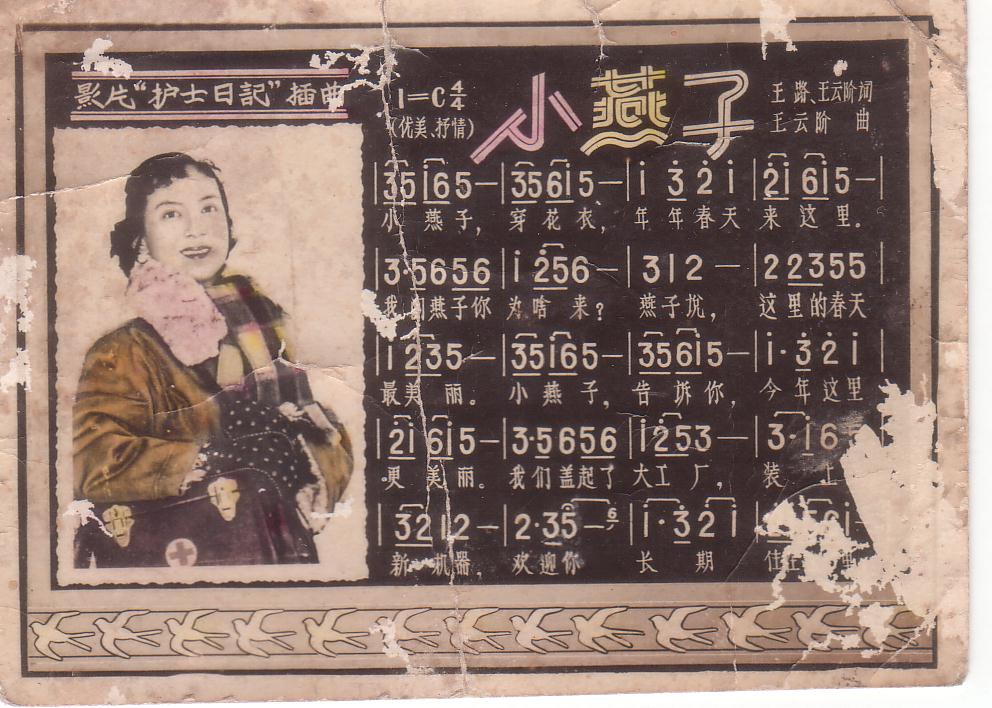 影片“护士日記”插曲
1=C 4/4
(优美、抒情)
小燕子
王路、王云阶 词
王云阶 曲
|35 i65–|356i5–|i 32i|2i6i5–|
小燕子，穿花衣，年年春天来这里．
|3·5656|i256–|312–|22355|
我们燕子你为啥来？燕子说，这里的春天
|1235–|35i65–|356i5–|i·32i|
最美丽。小燕子，告诉你，今年这里
|2i6i5–|3·5656|i253–|3·i6
更美丽。我们盖起了大工厂，装上
|3212–|2·35–6/|i·32i|
新机器，欢迎你长期住